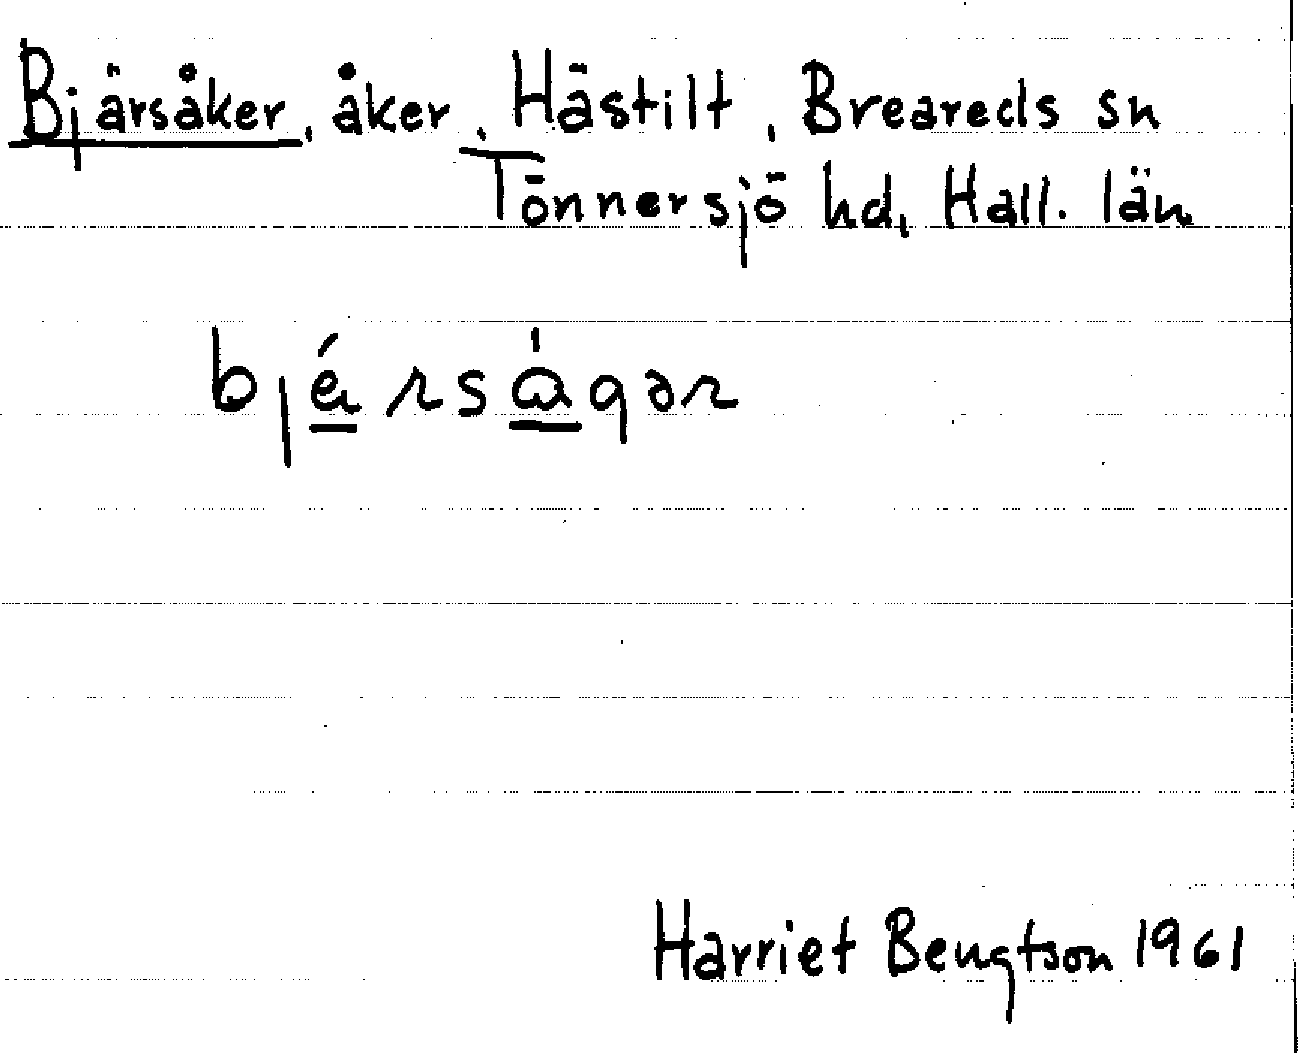 Bjärsåker, åker, Hästilt, Breareds sn
Tönnersjö hd, Hall. län
bjǽrsågər
Harriet Bengtson 1961